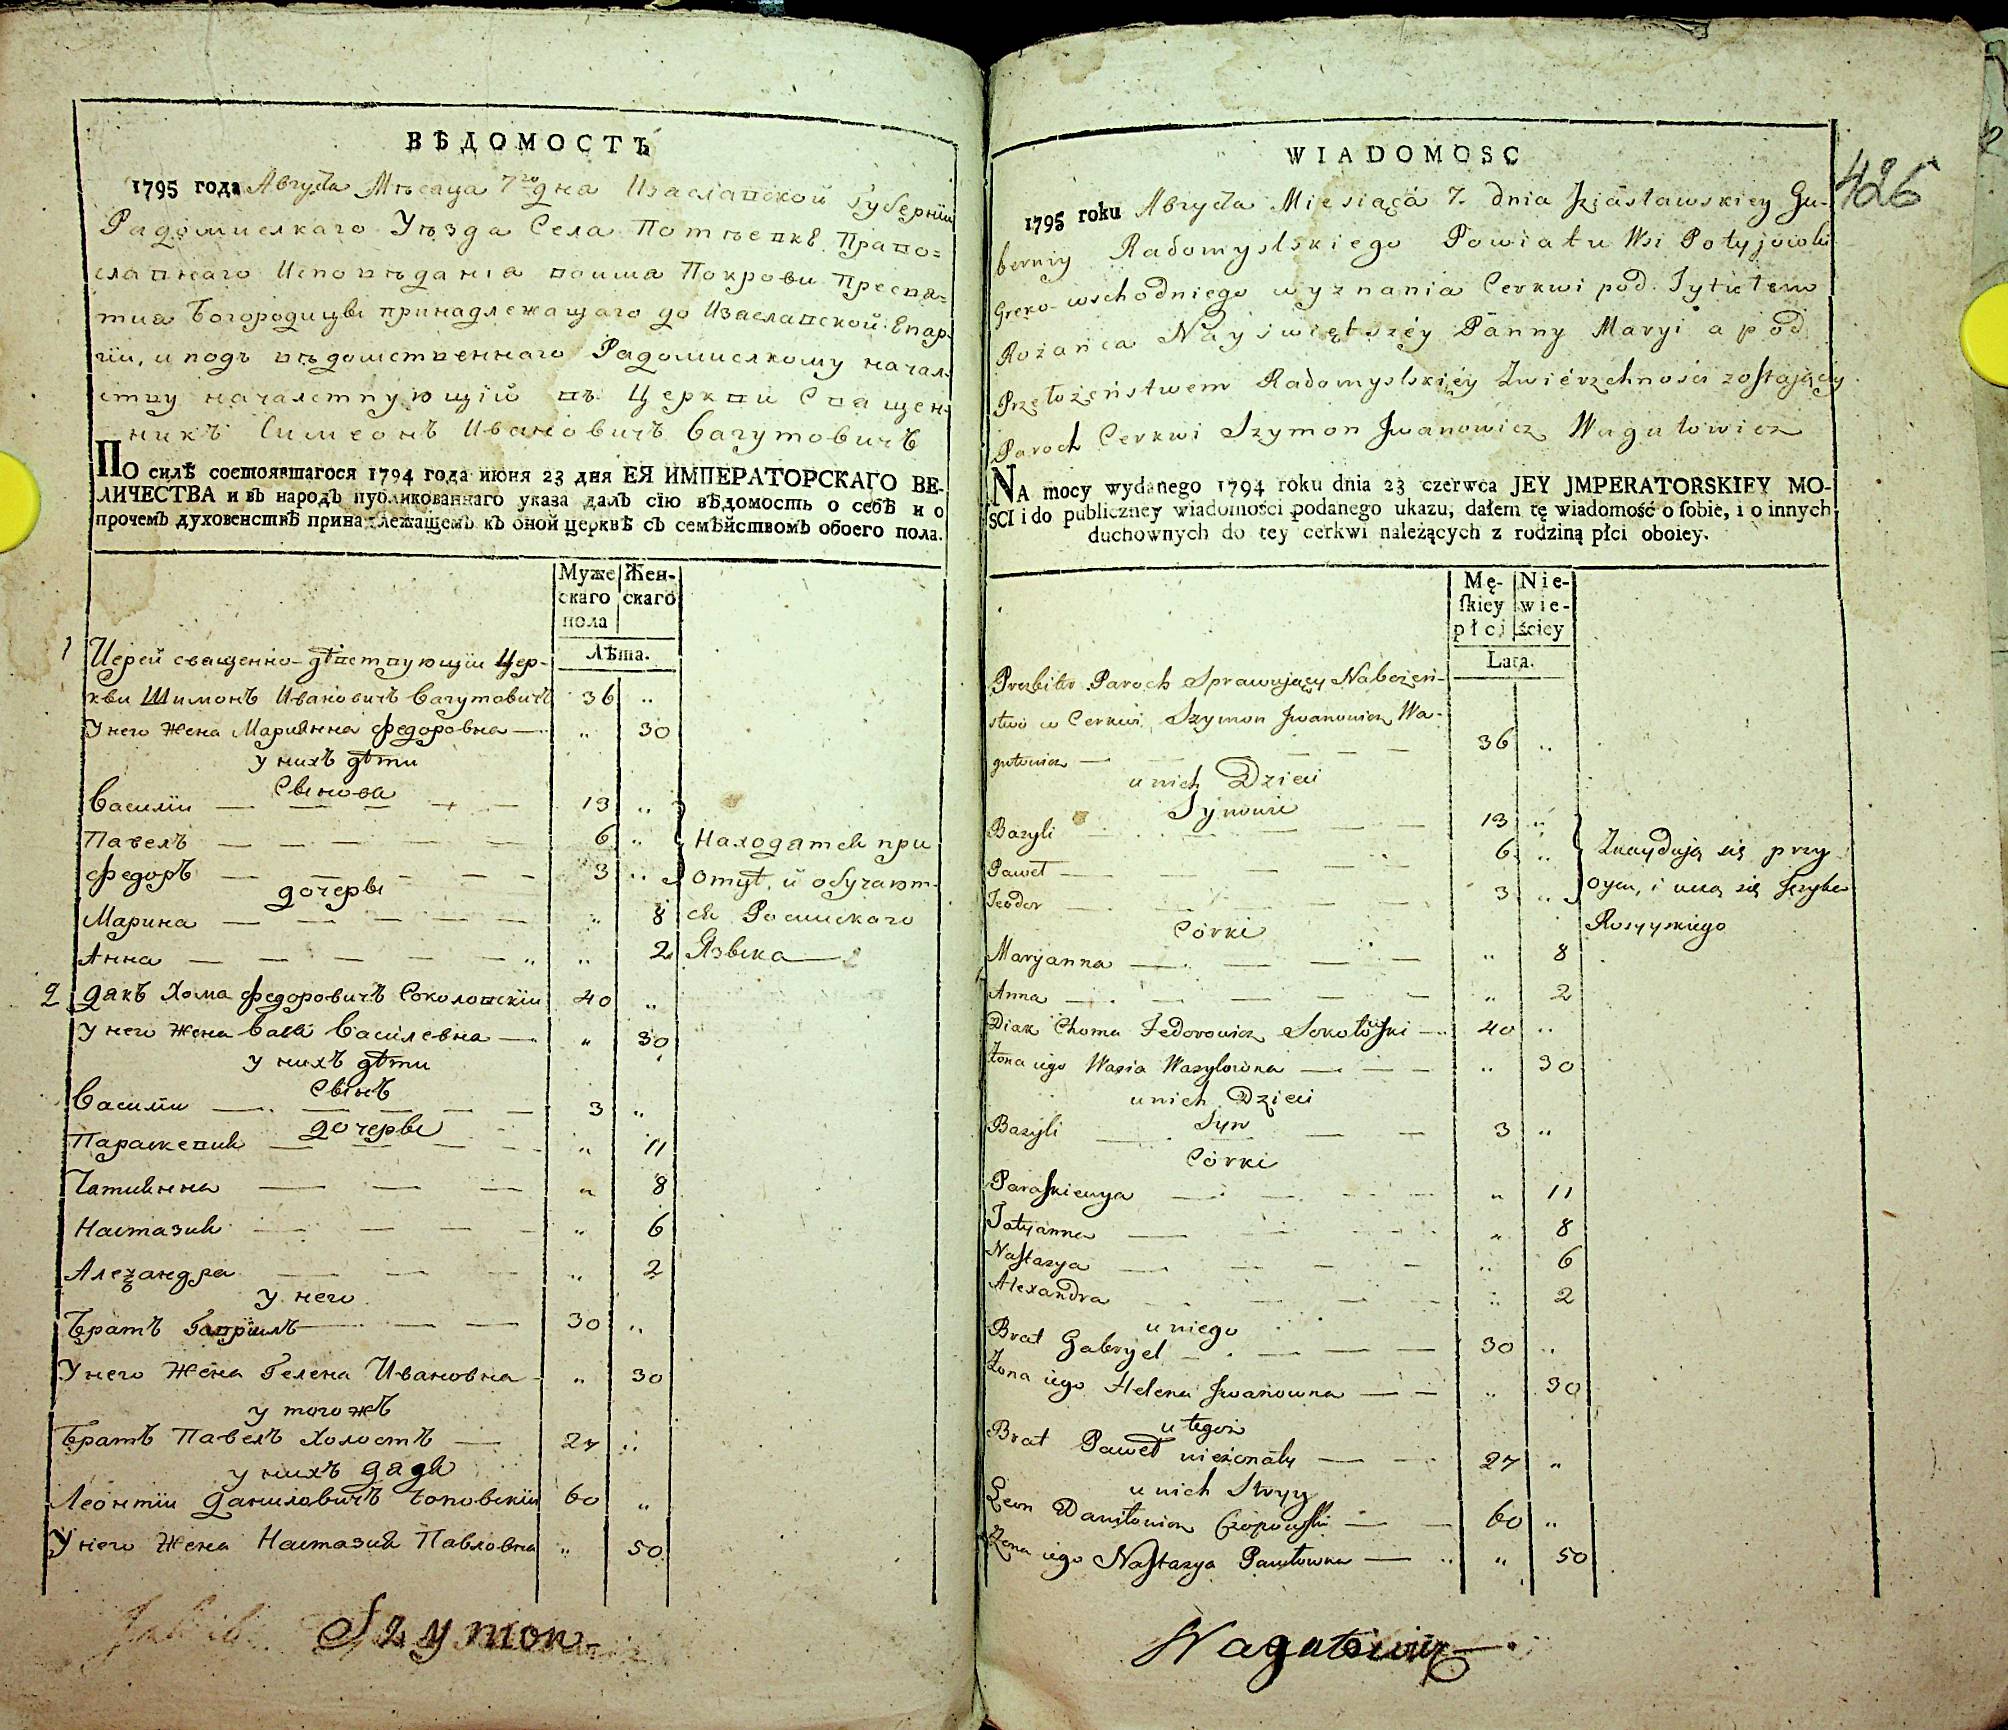 ВѢДОМОСТЬ
1795 года Августа Мѣсаца 7го дна Изаславской Губернїи
Радомиелкаго Уѣзда Села Потѣевкѣ Право=
славнаго Исповѣданїа воима Покрови Пресва=
тиа Богородицьі принадлежащаго до Изаславской Епар
гїи, и подъ вѣдомственнаго Радомиелкому начал.
ству началствующїй въ Церкви Сващен.
никъ Симеонъ Ивановичъ Вагутовичъ
ПО силѣ состоявшагося 1794 года июня 23 дня ЕЯ ИМПЕРАТОРСКАГО ВЕ-
ЛИЧЕСТВА и въ народъ публикованнаго указа далъ сїю вѣдомость о себѣ и о
прочемъ духовенствѣ принадлежащемъ къ оной церквѣ съ семѣйствомъ обоего пола.
Муже Жен-
скаго скаго
пола
Лѣта.
1 Иерей сващенно-дѣйствующїи Цер-
кви Шимонъ Ивановичъ Вагутовичъ 36 „
У него Жена Марианна Федоровна — „ 30
у нихъ дѣти
Сьінова
Василїи — — — — 13 „
Павелъ — — — — 6 „ Находатса при
Федоръ — — — — 3 „ отцѣ, и обучают-
дочерьі
Марина — — — — „ 8 са Росийскаго
Анна — — — — „ 2 Язьіка —
2 Дакъ Хома Федоровичъ Соколовскїи 40 „
У него Жена Васа Василевна — „ 30
у нихъ дѣти
Сьінъ
Василїи — — — — 3 „
дочерьі
Параскевиа — — — „ 11
Татианна — — — „ 8
Настазиа — — — „ 6
Алеѯандра — — — „ 2
у него
Братъ Гаврїилъ — — — 30 „
У него Жена Гелена Ивановна - „ 30
у того жъ
Братъ Павелъ Холостъ — 27 „
у нихъ дада
Леонтїи Даниловичъ Чоповскїи 60 „
У него Жена Настазиа Павловна „ 50
Szymon-
WIADOMOSC
426
1795 roku Августа Miesiąca 7. dnia Jzjasławskiey Gu-
berniy Radomyslskiego Powiatu Wsi Potyjowki
Greko-wschodniego wyznania Cerkwi pod Tytułem
Rożańca Nayświętszéy Panny Maryi a pod
Przełożeństwem Radomyslskiéy Zwiérzchności zostającéy
Paroch Cerkwi Szymon Jwanowicz Wagutowicz
NA mocy wydanego 1794 roku dnia 23 czerwca JEY JMPERATORSKIEY MO-
SCI i do publiczney wiadomości podanego ukazu, dałem tę wiadomość o sobie, i o innych
duchownych do tey cerkwi należących z rodziną płci oboiey.
Mę- Nie-
skiey wie-
płci ściey
Lata.
Prezbiter Paroch Sprawujący Nabożeń-
stwo w Cerkwi Szymon Jwanowicz Wa-
gutowicz — — — — 36 „
u nich Dzieci
Synowie
Bazyli — — — — 13 „
Paweł — — — — 6 „ Znaydują się przy
Teodor — — — — 3 „ oycu, i uczą się Języka
Rossyyskiego
Córki
Maryanna — — — — „ 8
Anna — — — — „ 2
Diak Choma Fedorowicz Sokołowski — 40 „
Żona iego Wasia Wasylowna — — „ 30
u nich Dzieci
Syn
Bazyli — — — — 3 „
Córki
Paraskiewya — — — „ 11
Tatyanna — — — „ 8
Nastazya — — — „ 6
Alexandra — — — „ 2
u niego
Brat Gabryel — — — 30 „
Żona iego Helena Jwanowna — — „ 30
u tegoż
Brat Paweł nieżonaty — — 27 „
u nich Stryy
Leon Daniłowicz Czopowski — — 60 „
Żona iego Nastazya Pawłowna — „ 50
Wagutowicz